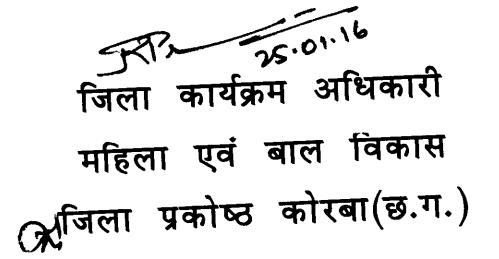 25.01.16
जिला कार्यक्रम अधिकारी
महिला एवं बाल विकास
जिला प्रकोष्ठ कोरबा(छ.ग.)